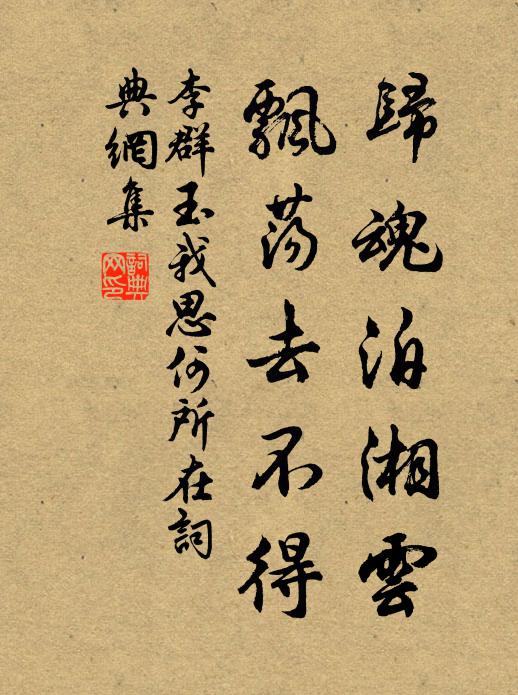 歸魂泊湘雲
飄蕩去不得
李群玉我思何所在詞
典網集
詞典
网印